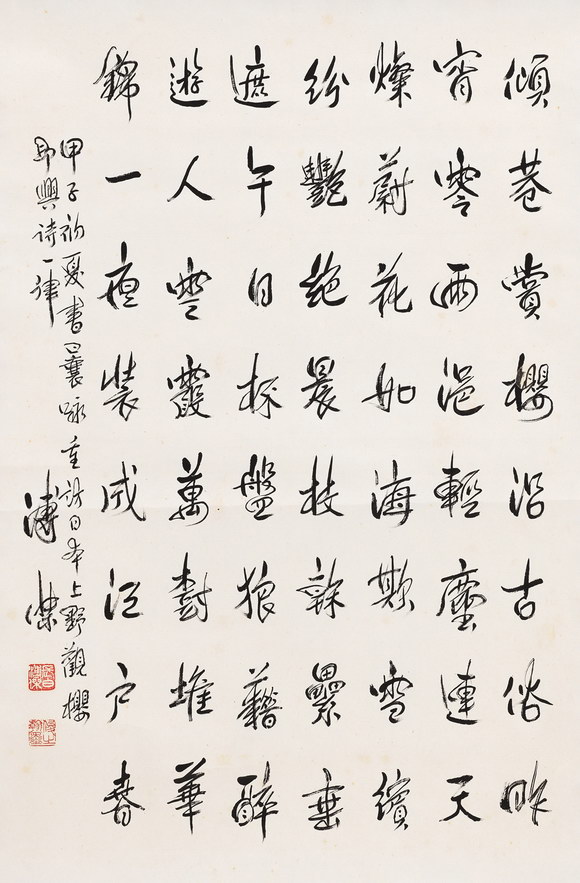 傾巷賞櫻沿古俗昨
宵零雨浥輕塵連天
燦蔚花如海欺雪繽
紛艷絕晨枝幹纍垂
遮午日杯盤狼藉醉
遊人雲霞萬樹堆華
錦一夜裝成江戶春
甲子初夏書曩咏重訪日本上野觀櫻
即興詩一律
溥傑